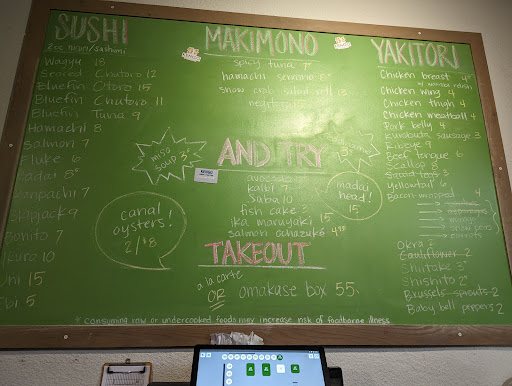 SUSHI
2oz nigiri/sashimi
Wagyu 18
Seared Chutoro 12
Bluefin Otoro 15
Bluefin Chutoro 11
Bluefin Tuna 9
Hamachi 8
Salmon 7
Fluke 6
Kanpachi 7
Skipjack 9
Bonito 7
Ikura 10
Uni 15
Ebi 5
miso soup 3
canal
oysters!
2/$8
MAKIMONO
spicy tuna 7
hamachi serrano 8
snow crab salad roll 13
negitoro
AND TRY
avocado
kalbi 9
saba 10
fish cake 3
ika maruyaki 15
salmon ochazuke 4.95
madai
head!
15
TAKEOUT
a la carte
OR omakase box 55.
YAKITORI
Chicken breast 4
Chicken wing 4
Chicken thigh 4
Chicken meatball 4
Pork belly 4
Kurobuta sausage 3
Ribeye 9
Beef tongue 6
Scallop 5
Squid legs 3
Yellowtail 6
Bacon-wrapped 4
asparagus
snow peas
carrots
Okra 2
Cauliflower 2
Shiitake 3
Shishito 2
Brussels sprouts 2
Baby bell peppers 2
* consuming raw or undercooked foods may increase risk of foodborne illness